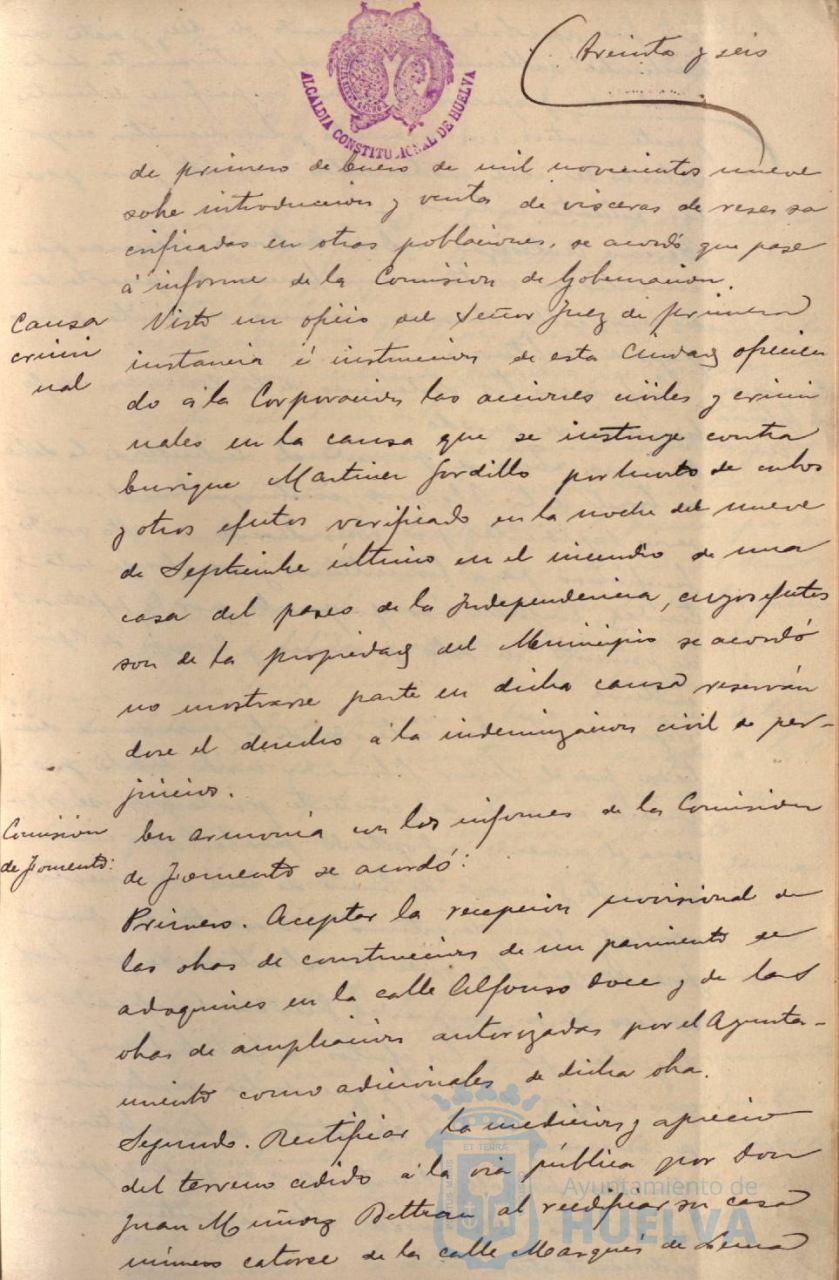 ALCALDIA CONSTITUCIONAL DE HUELVA
treinta y seis
de primero de Enero de mil novecientos nueve
sobre introduccion y venta de visceras de reses sa
crificadas en otras poblaciones, se acordó que pase
á informe de la Comision de Gobernacion.
Causa
crimi
nal
Visto un oficio del Señor Juez de primera
instancia é instruccion de esta Ciudad ofrecien
do á la Corporacion las acciones civiles y crimi
nales en la causa que se instruye contra
Enrique Martinez Gordillo por hurto de cubos
y otros efectos verificado en la noche del nueve
de Septiembre último en el incendio de una
casa del paseo de la Independencia, cuyos efectos
son de la propiedad del Municipio se acordó
no mostrarse parte en dicha causa reserván
dose el derecho á la indemnizacion civil de per-
juicios.
Comision
de Fomento:
En armonia con los informes de la Comision
de Fomento se acordó:
Primero. Aceptar la recepcion provisional de
las obras de construccion de un pavimento de
adoquines en la calle Alfonso doce y de las
obras de ampliacion autorizadas por el Ayunta-
miento como adicionales de dicha obra.
Segundo. Rectificar la medicion y aprecio
del terreno cedido á la via pública por Don
Juan Muñoz Beltran al reedificar su casa
número catorse de la calle Marqués de
ET TERRA
Ayuntamiento de
HUELVA